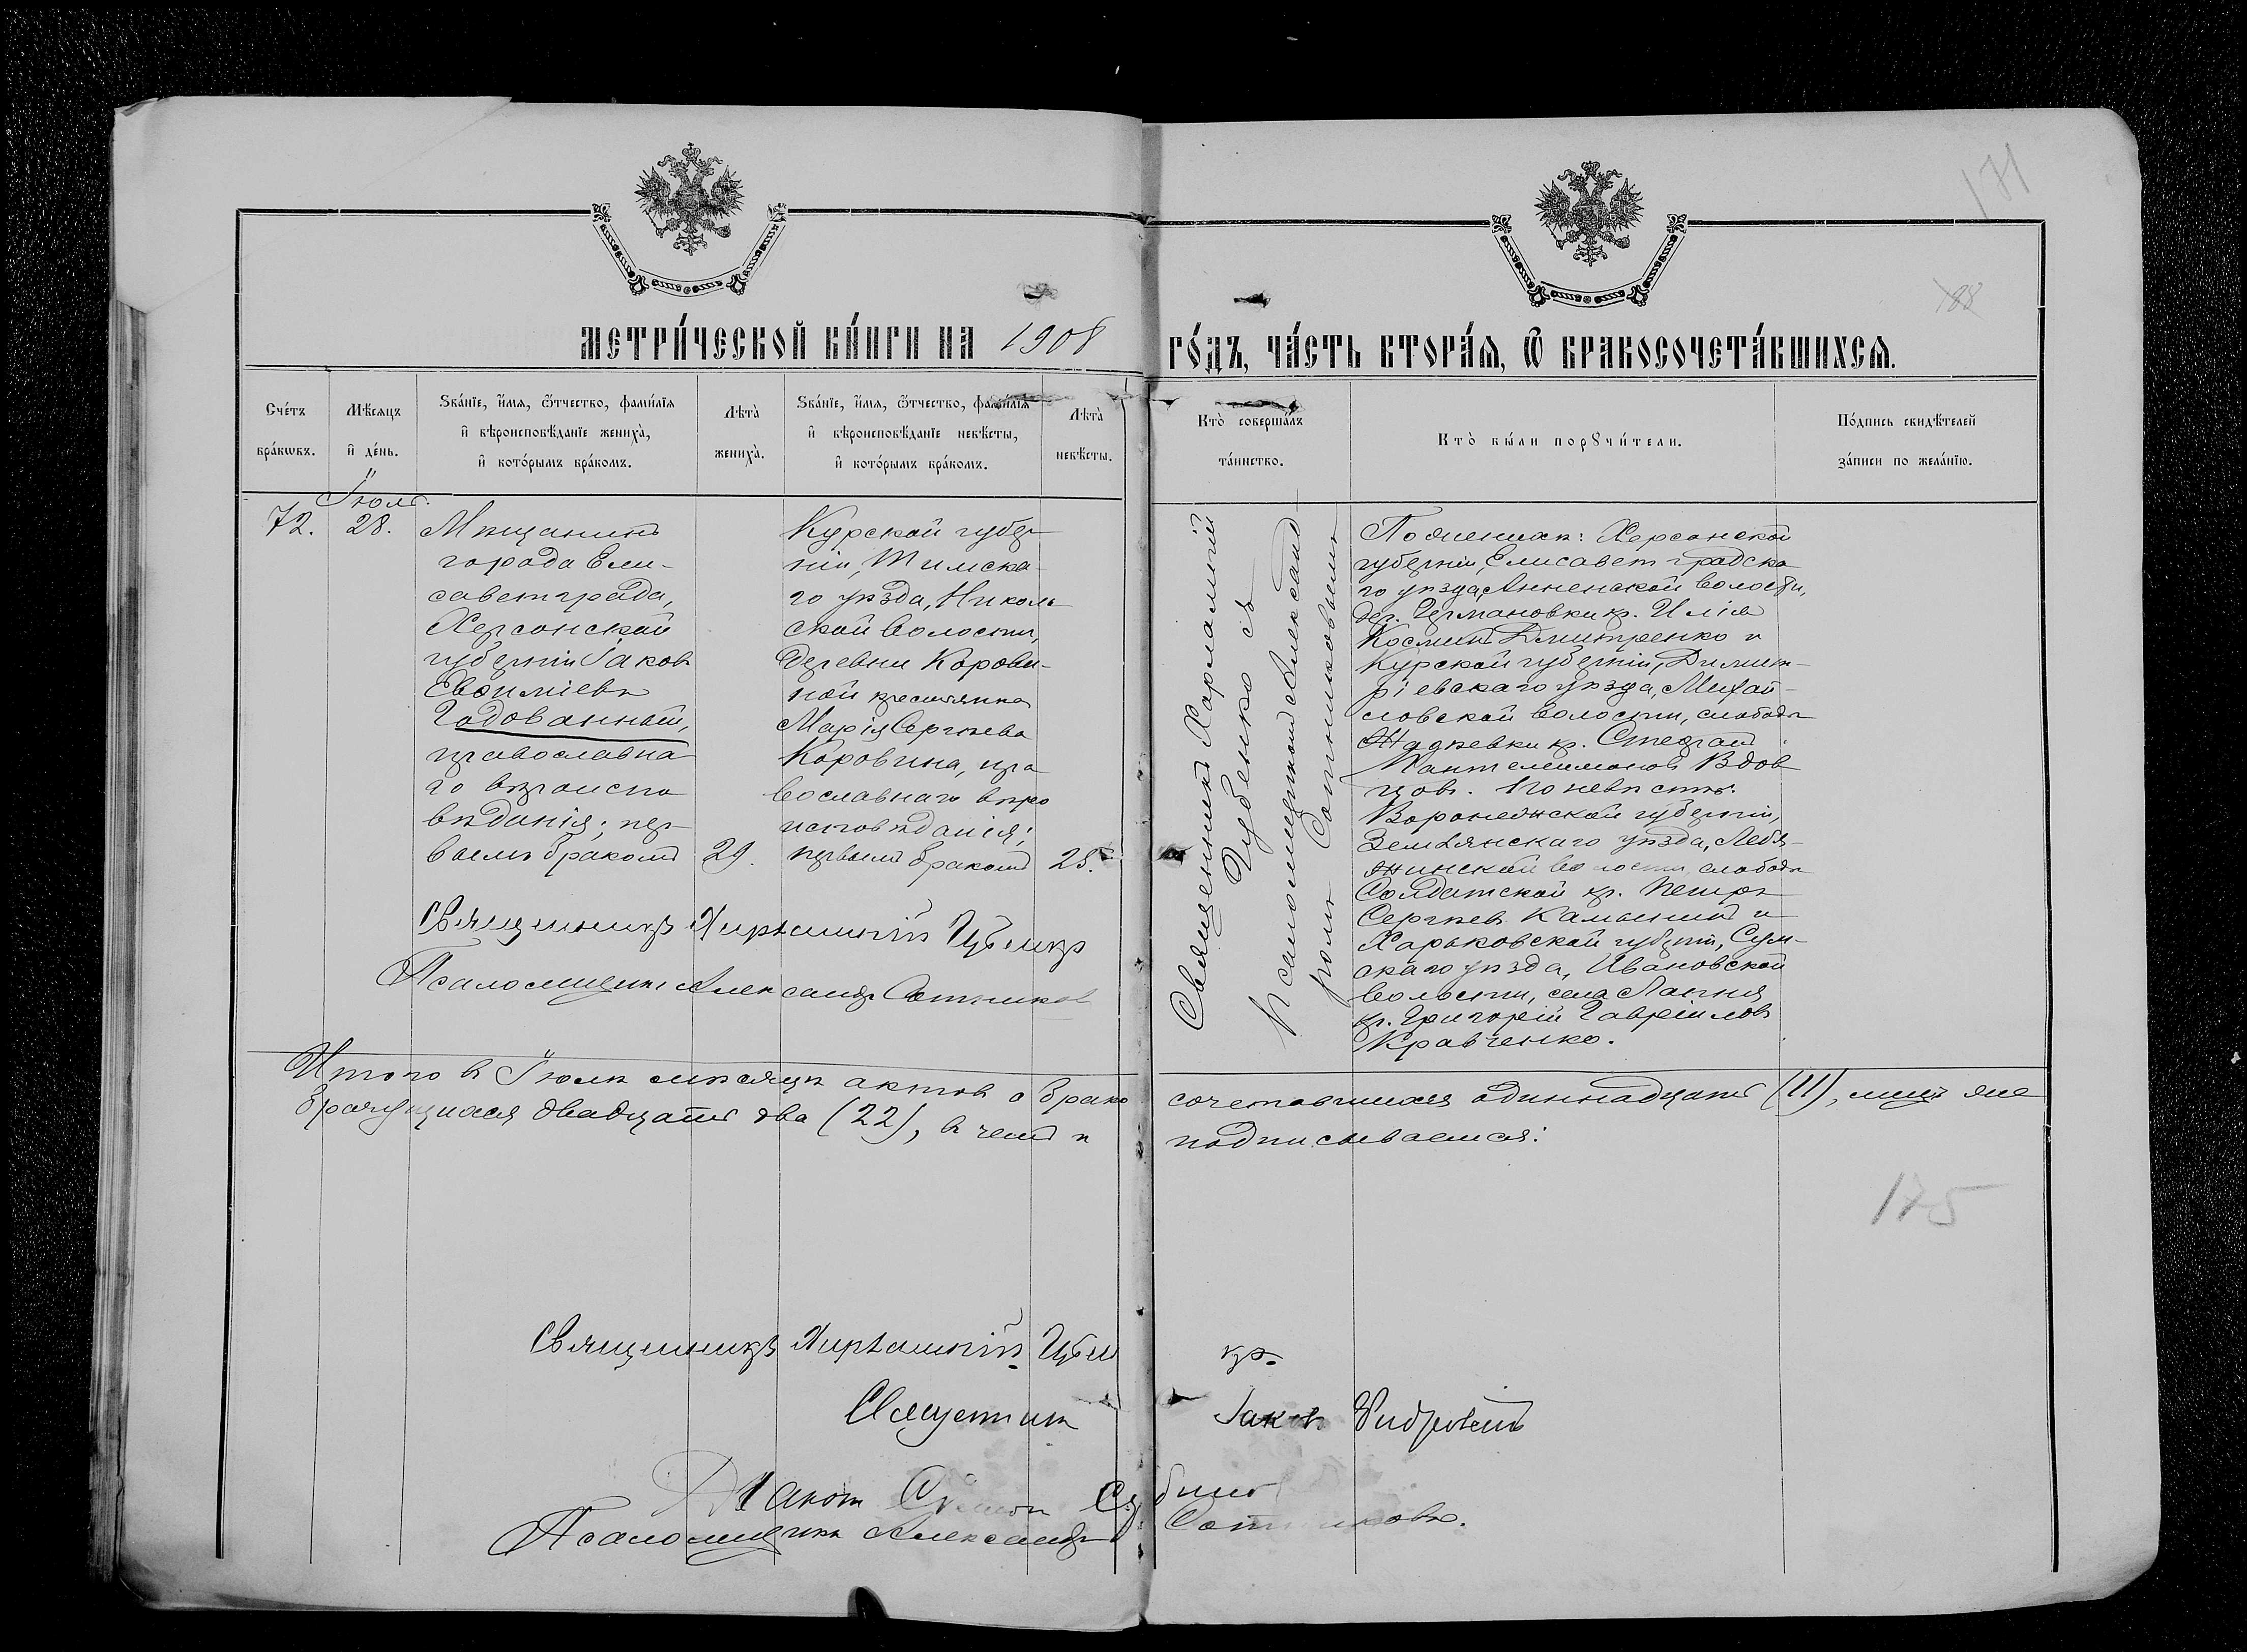 171
188
МЕТРИ́ЧЕСКОЙ КНИ́ГИ НА 1908 ГО́ДЪ, ЧА́СТЬ ВТОРА́Я, Ѽ БРАКОСОЧЕТА́ВШИХСЯ.
Сче́тъ бра́кѡвъ.
Мѣ́сяцъ и҆ де́нь.
Зва́нїе, и҆́мя, ѻ҆́тчество, фами́лїя и҆ вѣроисповѣ́данїе жениха̀, и҆ кото́рымъ бра́комъ.
Лѣта̀ жениха̀.
Зва́нїе, и҆́мя, ѻ҆́тчество, фами́лїя и҆ вѣроисповѣ́данїе невѣ́сты, и҆ кото́рымъ бра́комъ.
Лѣта̀ невѣ́сты.
Кто̀ соверша́лъ та́инство.
Кто̀ бы́ли порꙋчи́тели.
По́дпись свидѣ́телей за́писи по жела́нїю.
Іюль.
72.
28.
Мѣщанинъ
города Ели-
саветграда,
Херсонской
губерніи Іаковъ
Евѳиміевъ
Годованный,
православна
го вѣроиспо
вѣданія; пер-
вымъ бракомъ
29.
Курской губер
ніи, Тимска
го уѣзда, Николь
ской волости,
деревни Корови-
ной крестьянка
Марія Сергѣева
Коровина, пра
вославнаго вѣро
исповѣданія;
первымъ бракомъ
25.
Священникъ Харлампій
Чубенко съ
псаломщикомъ Александ
ромъ Сотниковымъ
По женихѣ: Херсонской
губерніи, Елисаветградска
го уѣзда, Анненской волости,
дер. Германовки кр. Илія
Космин Дмитренко и
Курской губерніи, Димит-
ріевскаго уѣзда, Михай-
ловской волости, слободы
кр. Стефанъ
Пантелеимоновъ Вдов
цовъ. По невѣстѣ:
Воронежской губерніи,
Землянскаго уѣзда, Лебя-
жинской волости, слободы
Солдатской кр. Петръ
Сергѣевъ и
Харьковской губерніи, Сум-
скаго уѣзда, Ивановской
волости, села
кр. Григорій Гавріиловъ
Кравченко.
Священникъ Харлампій
Псаломщикъ Александръ Сотниковъ
Итого въ Іюлѣ мѣсяцѣ актовъ о брако сочетавшихся одиннадцать (11), лицъ же
брачущихся двадцать два (22), въ чемъ и подписываемся:
175
Священникъ Харлампій
Іаковъ
Псаломщикъ Александръ Сотниковъ.